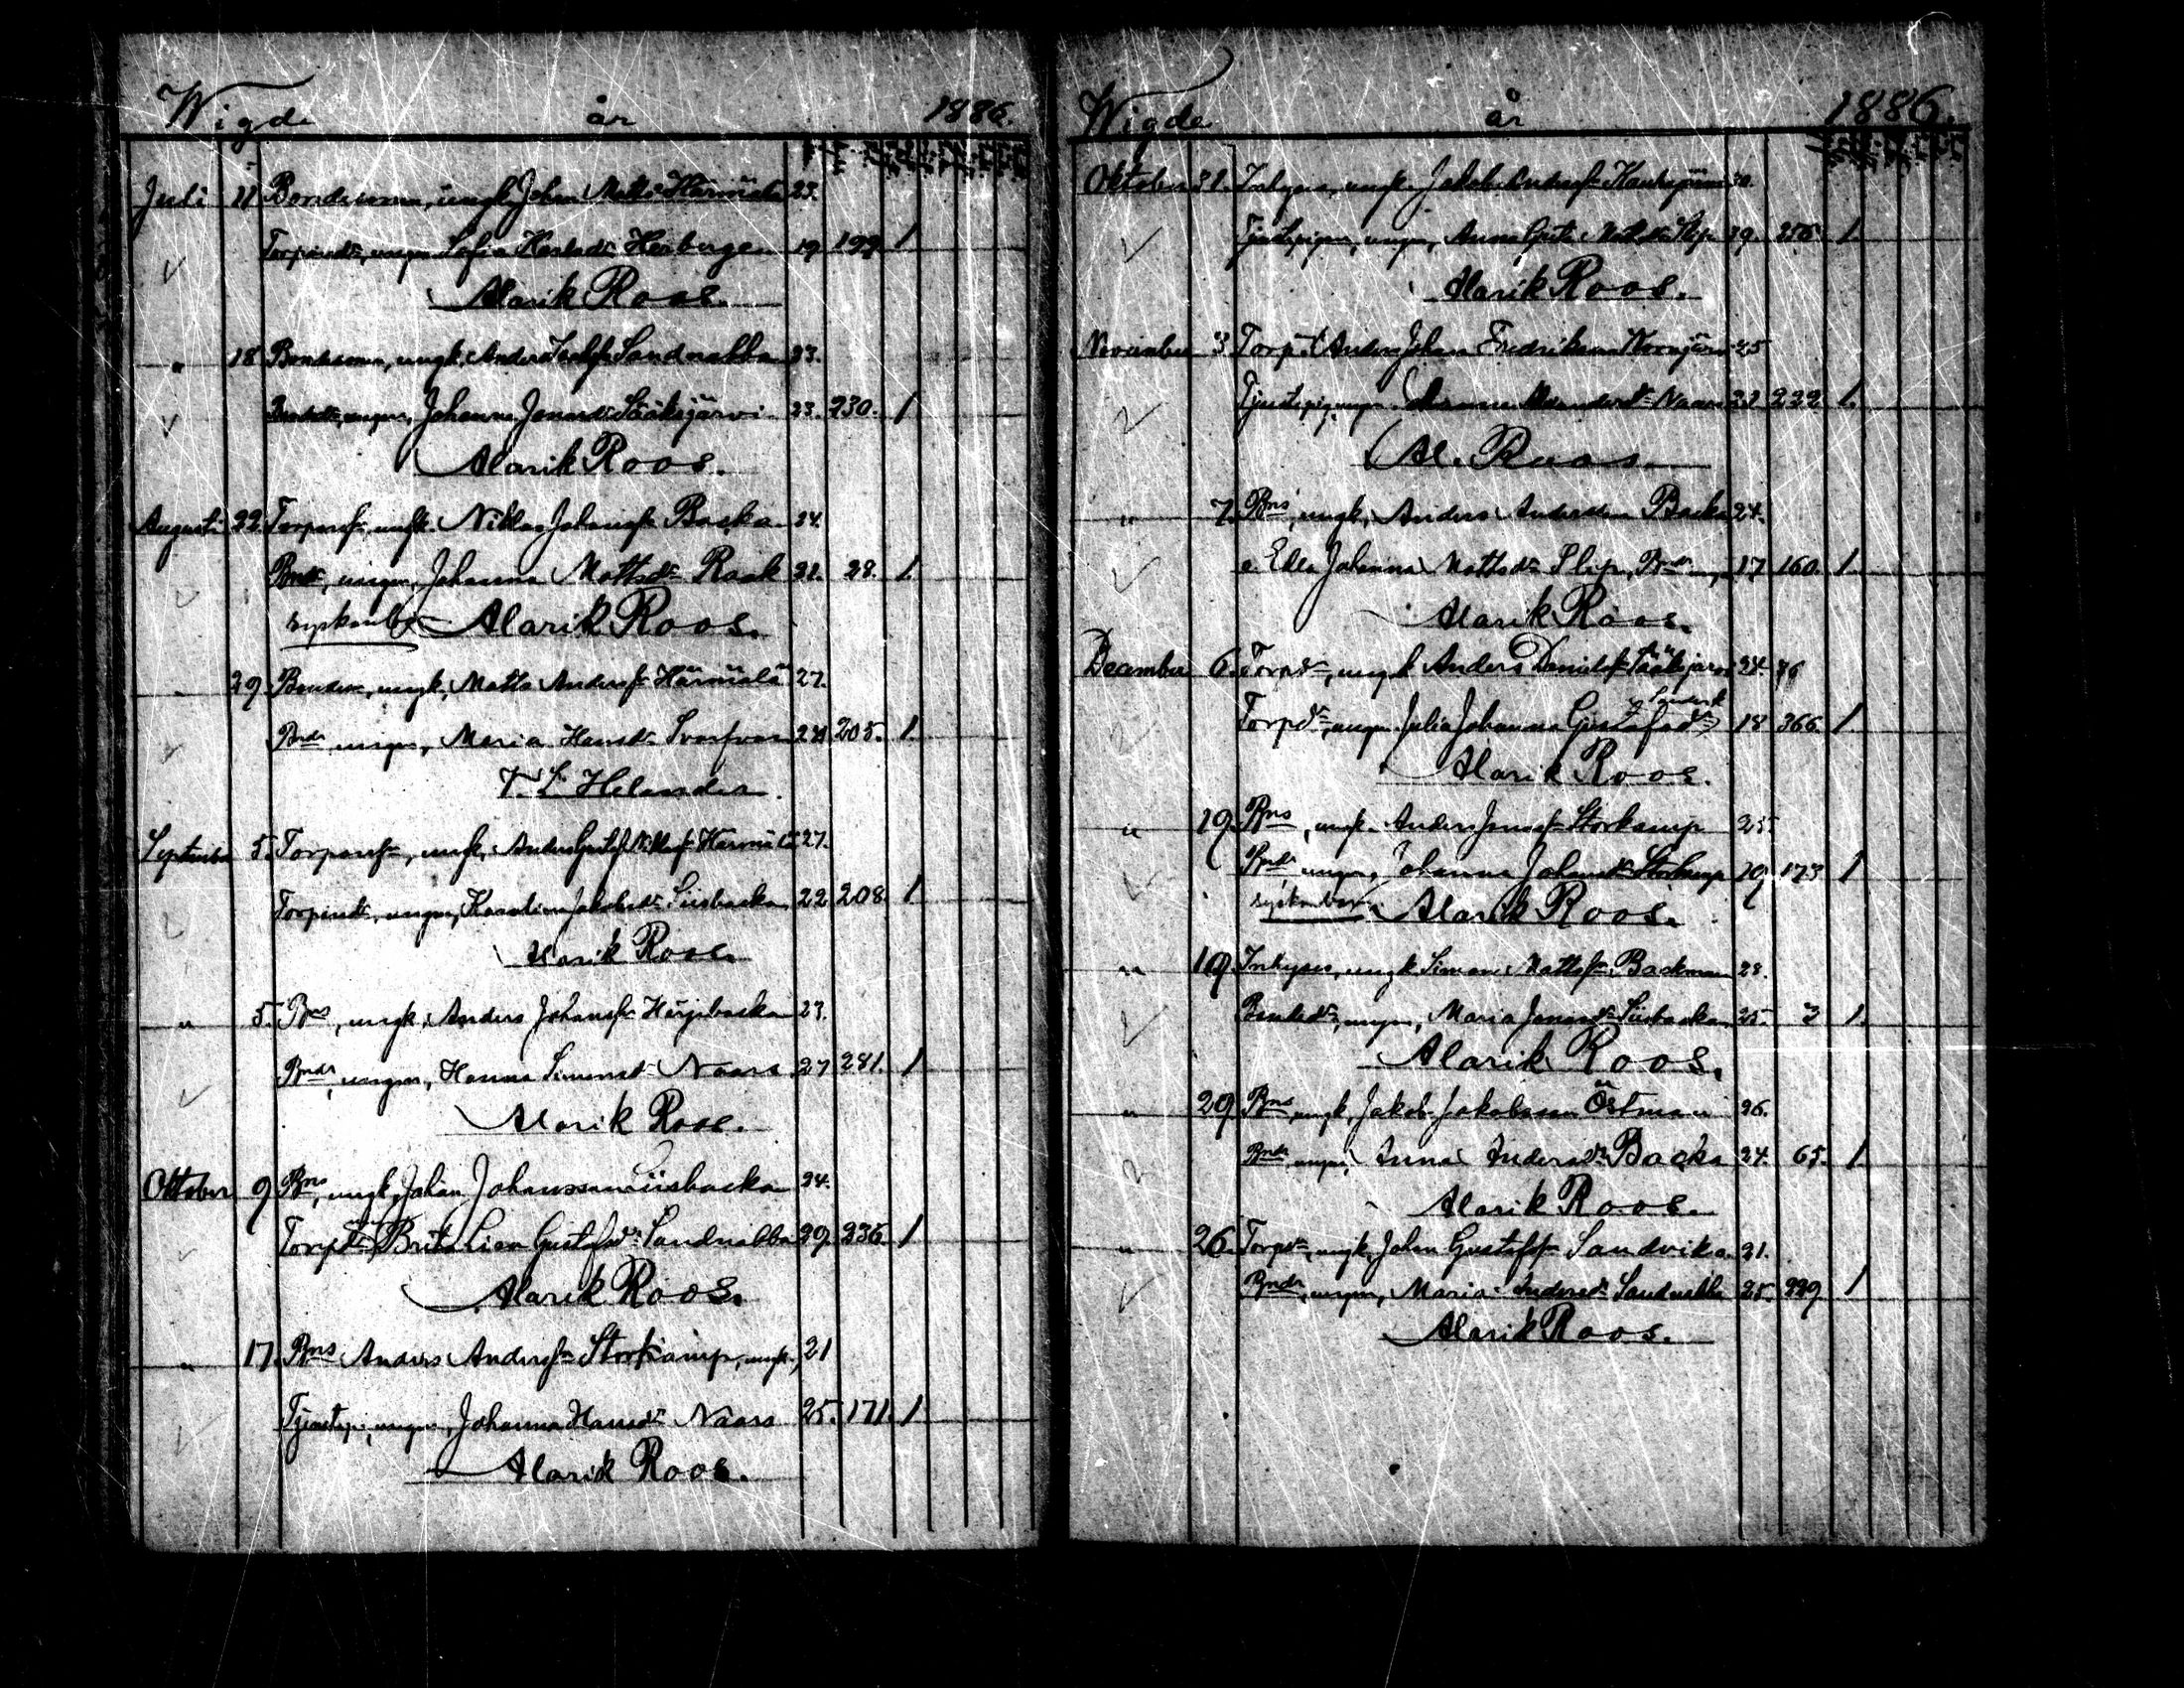 Wigde år 1886.
Juli 11 Bondesonen, ungk. Johan Matts Härmälä 23.
Torpared:r, ungm Sofia Herberga 19 199 1
Alarik Roos.
" 18 Bondesonen, ungk. Anders Sandnabba 23.
ungm, Johanna Jonasd:r Sääksjärvi 23. 230. 1
Alarik Roos.
Augusti 22. Torparesn, ungk. Niklas Johanssn Backa 24.
Bndr, ungm, Johanna Mattsdr Raak 21. 28. 1.
syskonb Alarik Roos.
" 29. Bondesn, ungk, Matts Anderssn Härmälä 27.
Bndr ungm, Maria Hansdr Svarfvar 205. 1.
Helander.
September 5. Torparesn, ungk, Anders Gustaf Niklassn Härmälä 27.
Torparedr, ungm, Karolina Jakobsdr Siisbacka 22 208. 1
Alarik Roos.
" 5. Bns, ungk, Anders Johanssn Herjebacka 23.
Bndr, ungm, Hanna Simonsdr Naars 27 281. 1
Alarik Roos.
Oktober 9 Bns, ungk, Johan Johansson Siisbacka 24.
Torpdr Brita Lisa Gustafsdr Sandnabba 29. 236. 1
Alarik Roos.
" 17. Bns Anders Anderssn Storkamp, ungk, 21
Tjenstepi, ungm, Johanna Hansdr Naars 25. 171. 1
Alarik Roos.
Wigde år 1886.
Oktober 31. Inhyses, ungk. Jakob Anderssn
Tjenstepigan, ungm, Anna Greta Mattsdr Slip 1.
Alarik Roos.
November 3 Torps Anders Johan Fredriksson Norrgård 25
Tjenstepig, ungm. Naars 222 1.
Al. Roos.
" 7. Bns, ungk, Anders Andersson Backa 24.
o. Edla Johanna Mattsdr Slip, Bndr 17 160. 1.
Alarik Roos.
December 6. Torpsn, ungk Anders Danielssn Sääksjärvi 24. 76
Torpdr, ungm. Julia Johanna Gustafsdr Sandvik 18 366. 1.
Alarik Roos.
" 19. Bns, ungk. Anders Jonassn Storkamp 25.
Bndr ungm, Johanna Johansdr Storkamp 20, 173 1
syskonbarn. Alarik Roos.
" 19. Inhyses, ungk Simon Mattssn Backman 28.
Bondedr, ungm, Maria Jonasdr Siisbacka 25. 3 1.
Alarik Roos.
" 29 Bns, ungk, Jakob Jakobsson Östman 26.
Bndr ungm, Anna Andersdr Backa 24. 65. 1.
Alarik Roos.
" 26. Torpsn, ungk, Johan Gustafssn Sandvik 21.
Bndr, ungm, Maria Andersdr Sandnabba 25. 229 1
Alarik Roos.